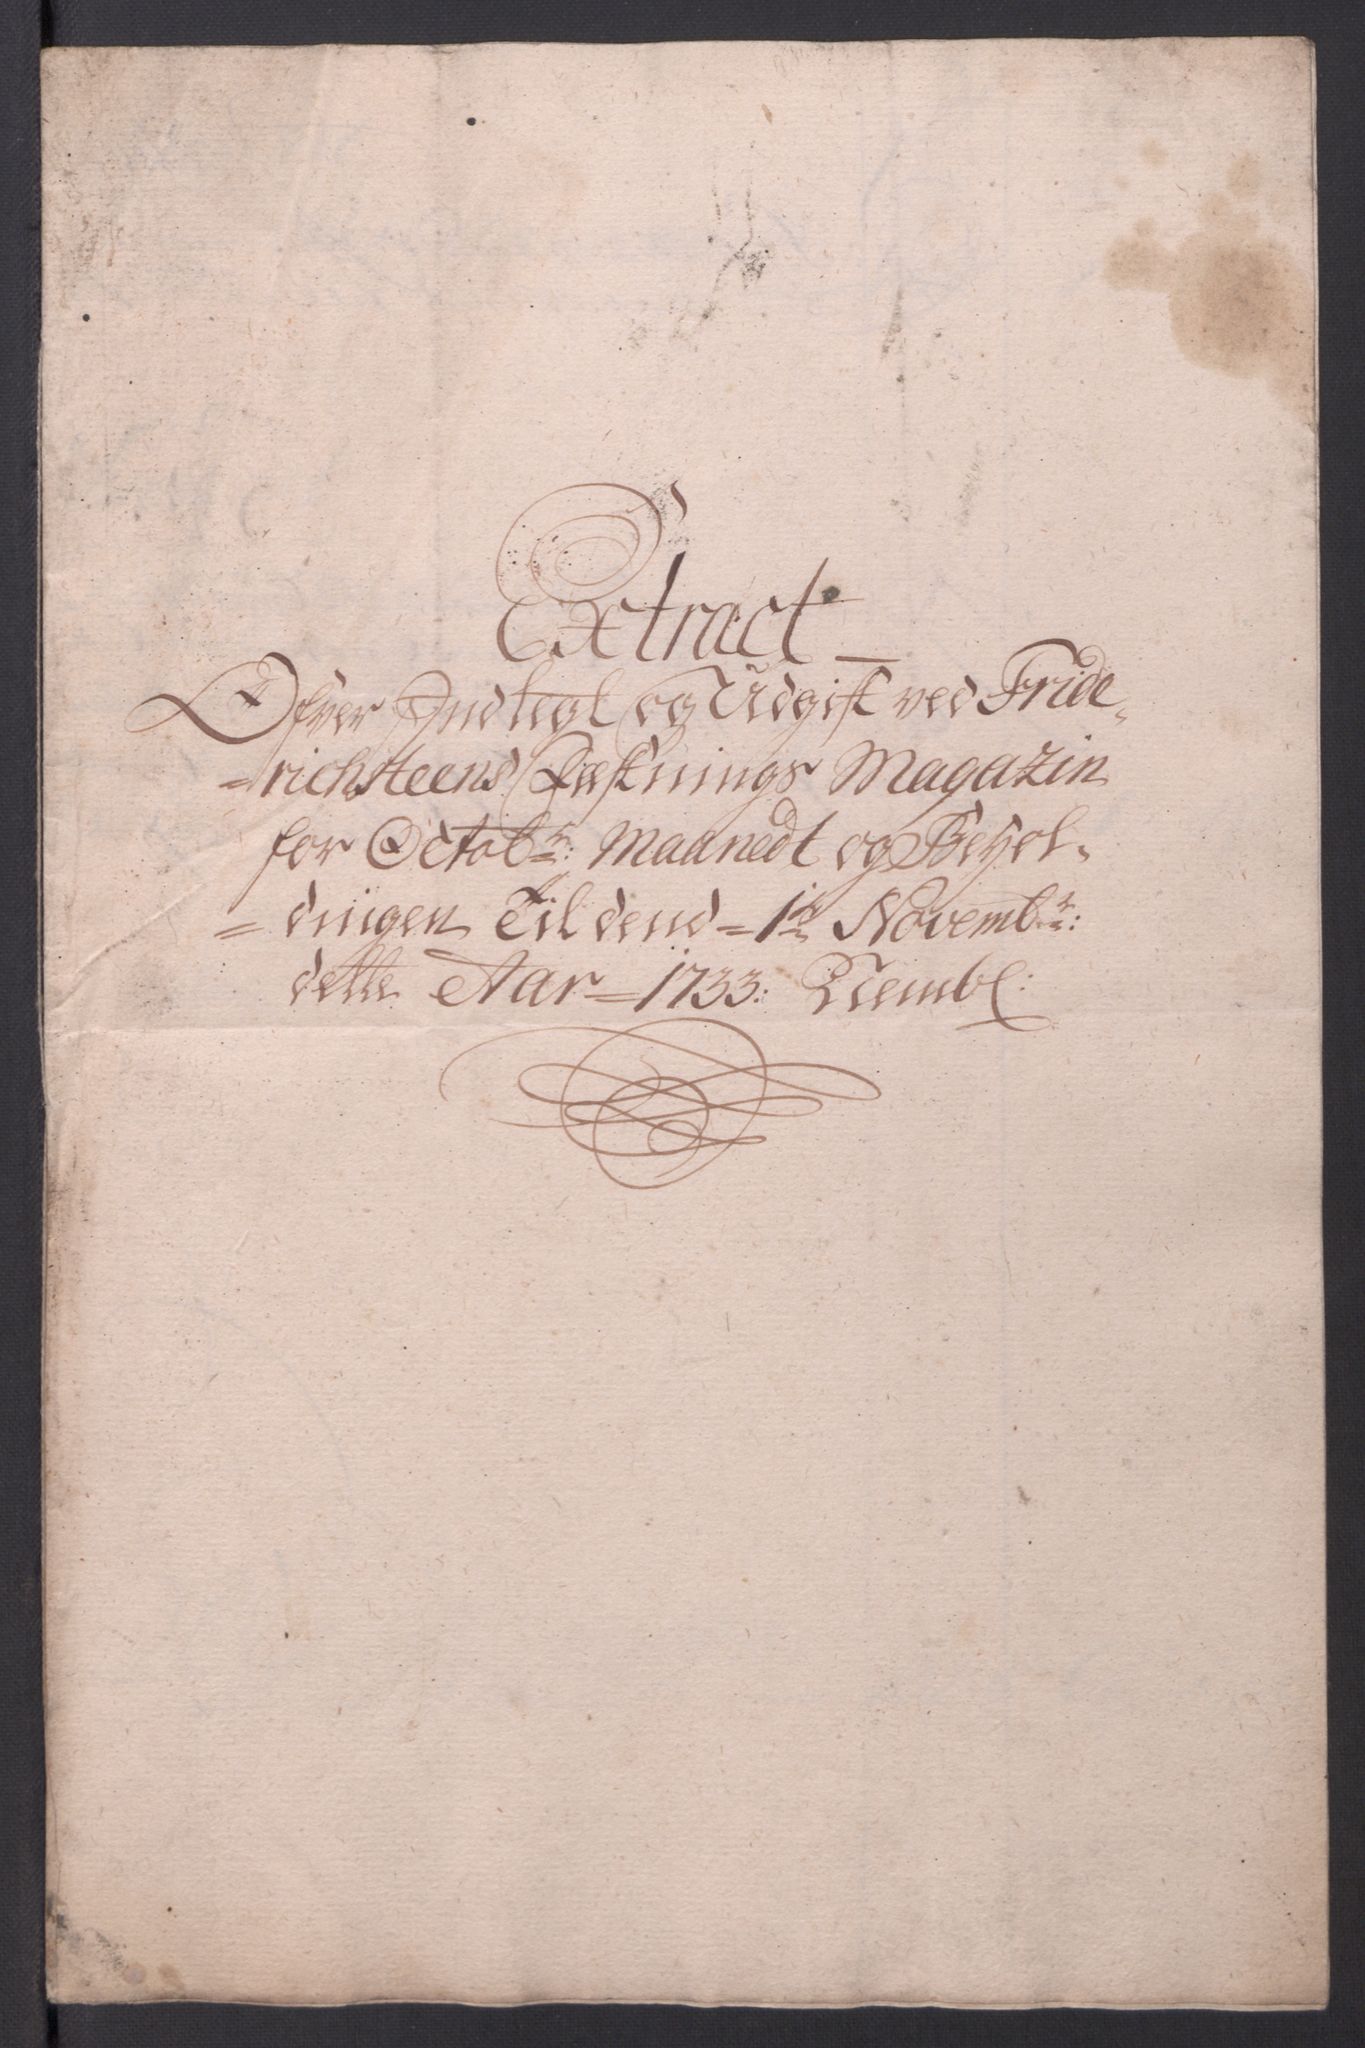 Extract
Ofver Indtegt og Udgift ved Fride-
=richsteens Fæstnings Magazin
for Octobr: Maanedt og Behol-
=dningen Til dend=1te Novembr:
dette Aar=1733: